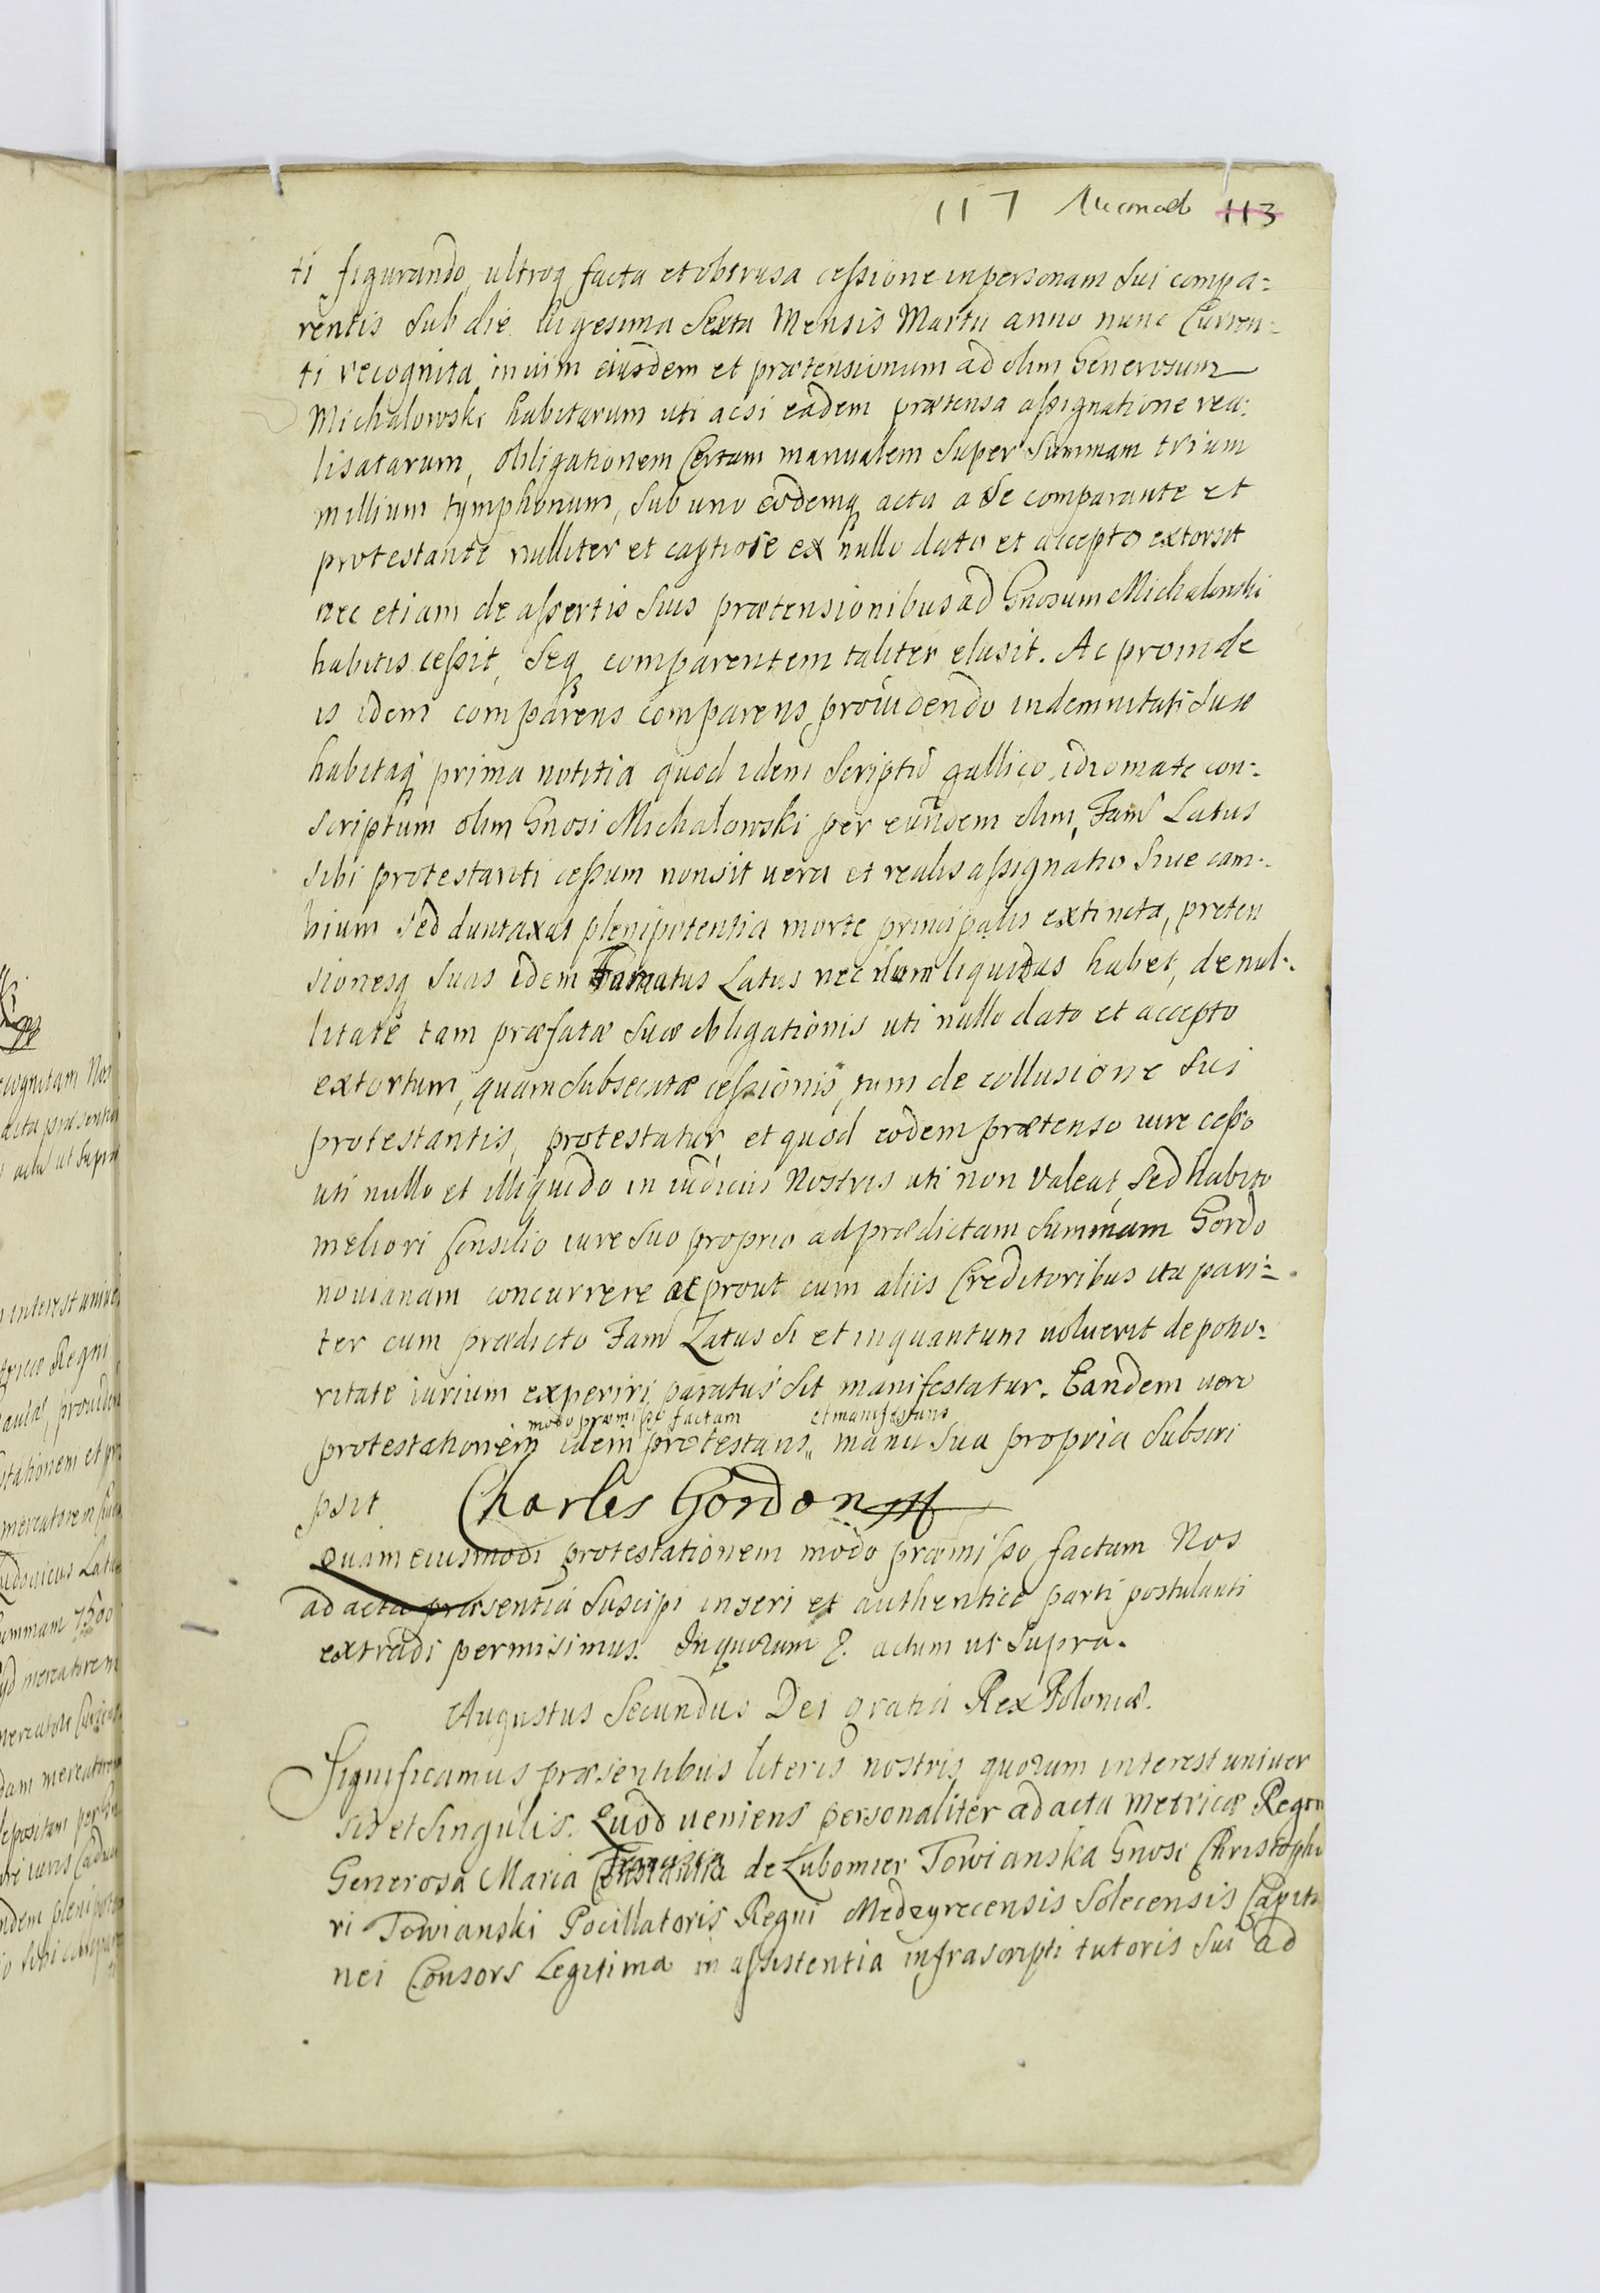 117 113
ti figurando, ultroq facta et obtrusa cessione in personam sui compa=
rentis sub die Vigesima Sexta Mensis Martii anno nunc Curren=
ti recognita in vim eiusdem et prætensionum ad olim Generosum
Michalowski habitarum uti acsi eadem prætensa assignatione rea=
lisatarum, obligationem Certam manualem super Summam trium
millium tymphonum, sub uno eodemq actu a se comparante et
protestante nulliter et captiose ex nullo dato et accepto extorsit
nec etiam de assertis suis prætensionibus ad Gnosum Michalowski
habitis cessit, Seq comparentem taliter elusit. Ac proinde
is idem comparens comparens providendo indemnitati suæ
habitaq prima notitia quod idem Scriptũ gallico idiomate con=
scriptum olim Gnosi Michalowski per eundem olim, Fam Latus
sibi protestanti cessum non sit vera et realis assignatio sive cam=
bium sed duntaxat plenipotentia morte principalis extincta, preten
sionesq suas idem Famatus Latus nec dum liquidas habet, de nul=
litate tam præfatæ suæ obligationis uti nullo dato et accepto
extortum, quam subsecutæ cessionis, tum de collusione sui
protestantis, protestatur, et quod eodem prætenso iure cesso
uti nullo et illiquido in iudiciis Nostris uti non valeat, sed habito
meliori consilio iure suo proprio ad prædictam summam Gordo
novianam concurrere ac prout cum aliis Creditoribus ita pari=
ter cum prædicto Fam Latus si et inquantum voluerit de potio=
ritate iurium experiri paratus sit manifestatur. Eandem vero
modo præmisso factam et manifestans
protestationem idem protestans manu sua propria subscri
psit Charles Gordon
Quam eiusmodi protestationem modo præmisso factam Nos
ad acta præsentia suscipi inseri et authentice parti postulanti
extradi permisimus. In quorum actum ut supra.
Augustus Secundus Dei gratia Rex Poloniæ.
Significamus præsentibus literis nostris quorum interest univer
sis et singulis. Quod veniens personaliter ad acta Metricæ Regni
Generosa Maria de Lubomier Towianska Gnosi Christopho
ri Towianski Pocillatoris Regni Medzyrecensis Solecensis Capita
nei Consors Legitima in assistentia infrascripti tutoris sui ad